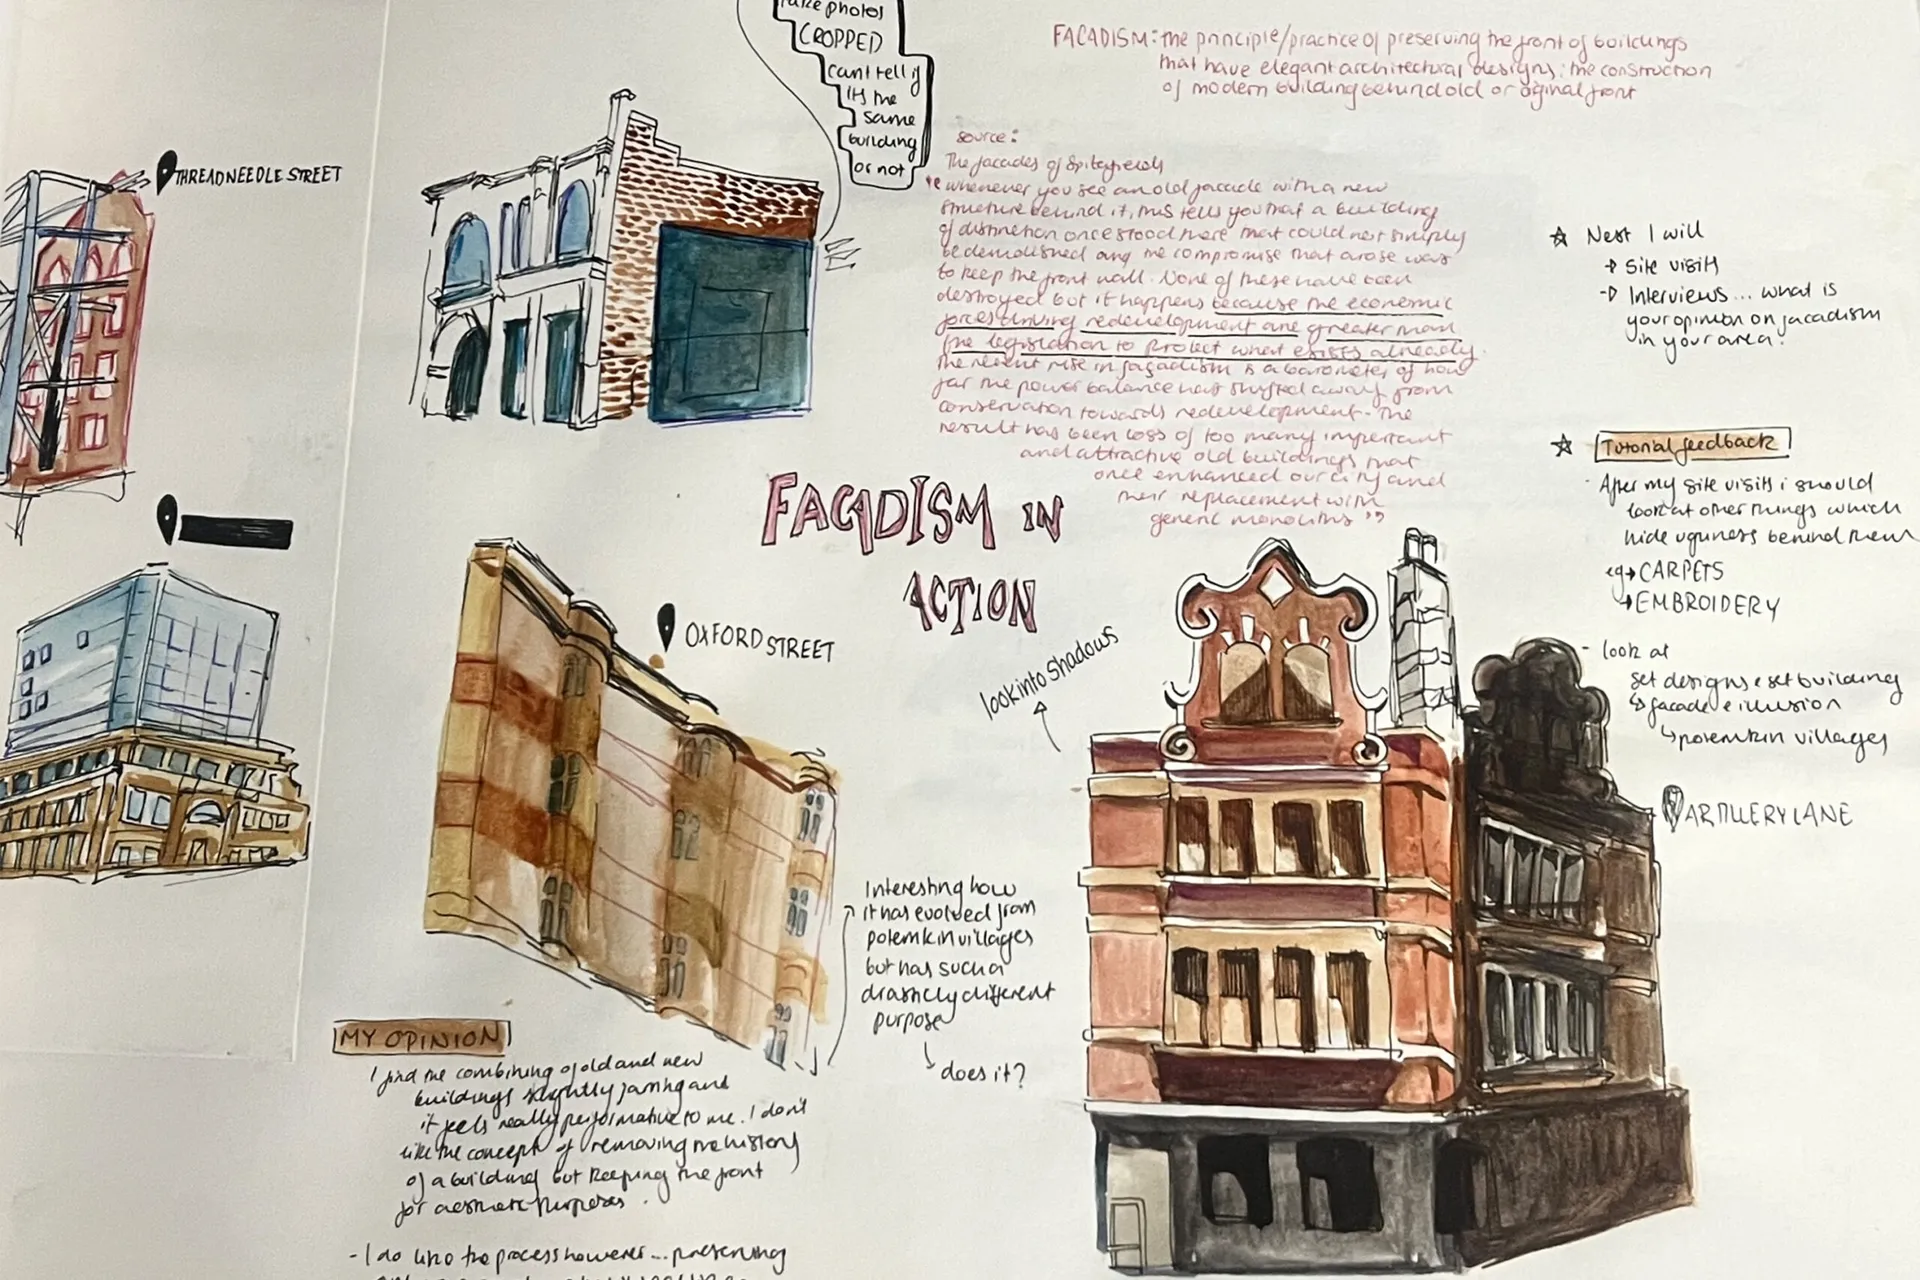 take photos
CROPPED
cant tell if
its the
same
building
or not
FACADISM: the principle/practice of preserving the front of buildings
that have elegant architectural designs; the construction
of modern building behind old or original front
source:
The facades of Spitalfields
"whenever you see an old facade with a new
structure behind it, this tells you that a building
of distinction once stood there that could not simply
be demolished and the compromise that arose was
to keep the front wall. None of these have been
destroyed but it happens because the economic
forces driving redevelopment are greater than
the legislation to protect what exists already.
The recent rise in façadism is a barometer of how
far the power balance has shifted away from
conservation towards redevelopment. The
result has been loss of too many important
and attractive old buildings that
once enhanced our city and
their replacement with
generic monoliths"
THREADNEEDLE STREET
FACADISM IN
ACTION
OXFORD STREET
look into shadows
Next I will
→ Site visits
→ Interviews... what is
your opinion on facadism
in your area?
Tutorial feedback
· After my site visits i should
look at other things which
hide ugliness behind them
eg → CARPETS
→ EMBROIDERY
- look at
set designs & set building
↳ facade & illusion
↳ potemkin villages
ARTILLERY LANE
Interesting how
it has evolved from
potemkin villages
but has such a
drasticly different
purpose
does it?
MY OPINION
I find the combining of old and new
buildings slightly jarring and
it feels really performative to me. I don't
like the concept of removing the history
of a building but keeping the front
for aesthetic purposes.
- I do like the process however... preserving